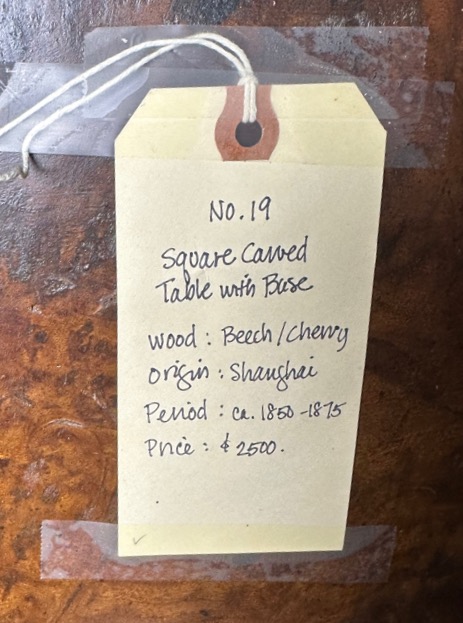 No. 19
Square Carved
Table with Base
Wood : Beech / Cherry
Origin : Shanghai
Period : ca. 1850 - 1875
Price : $ 2500.